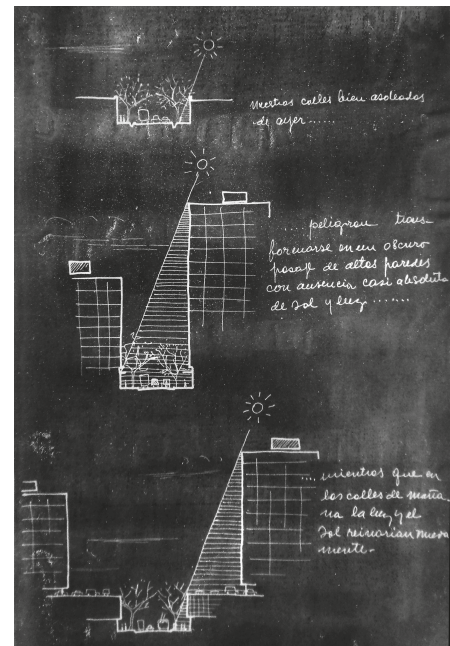 nuestras calles bien asoleadas
de ayer......
.... peligran trans-
formarse en un oscuro
pasaje de altas paredes
con ausencia casi absoluta
de sol y luz.......
.... mientras que en
las calles de maña
na la luz y el
sol reinarian nueva
mente.